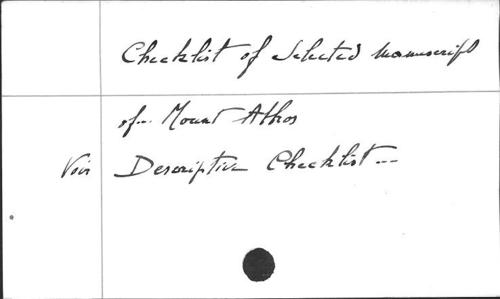 Checklist of Selected Manuscript
of... Mount Athos
Voir Descriptive Checklist...